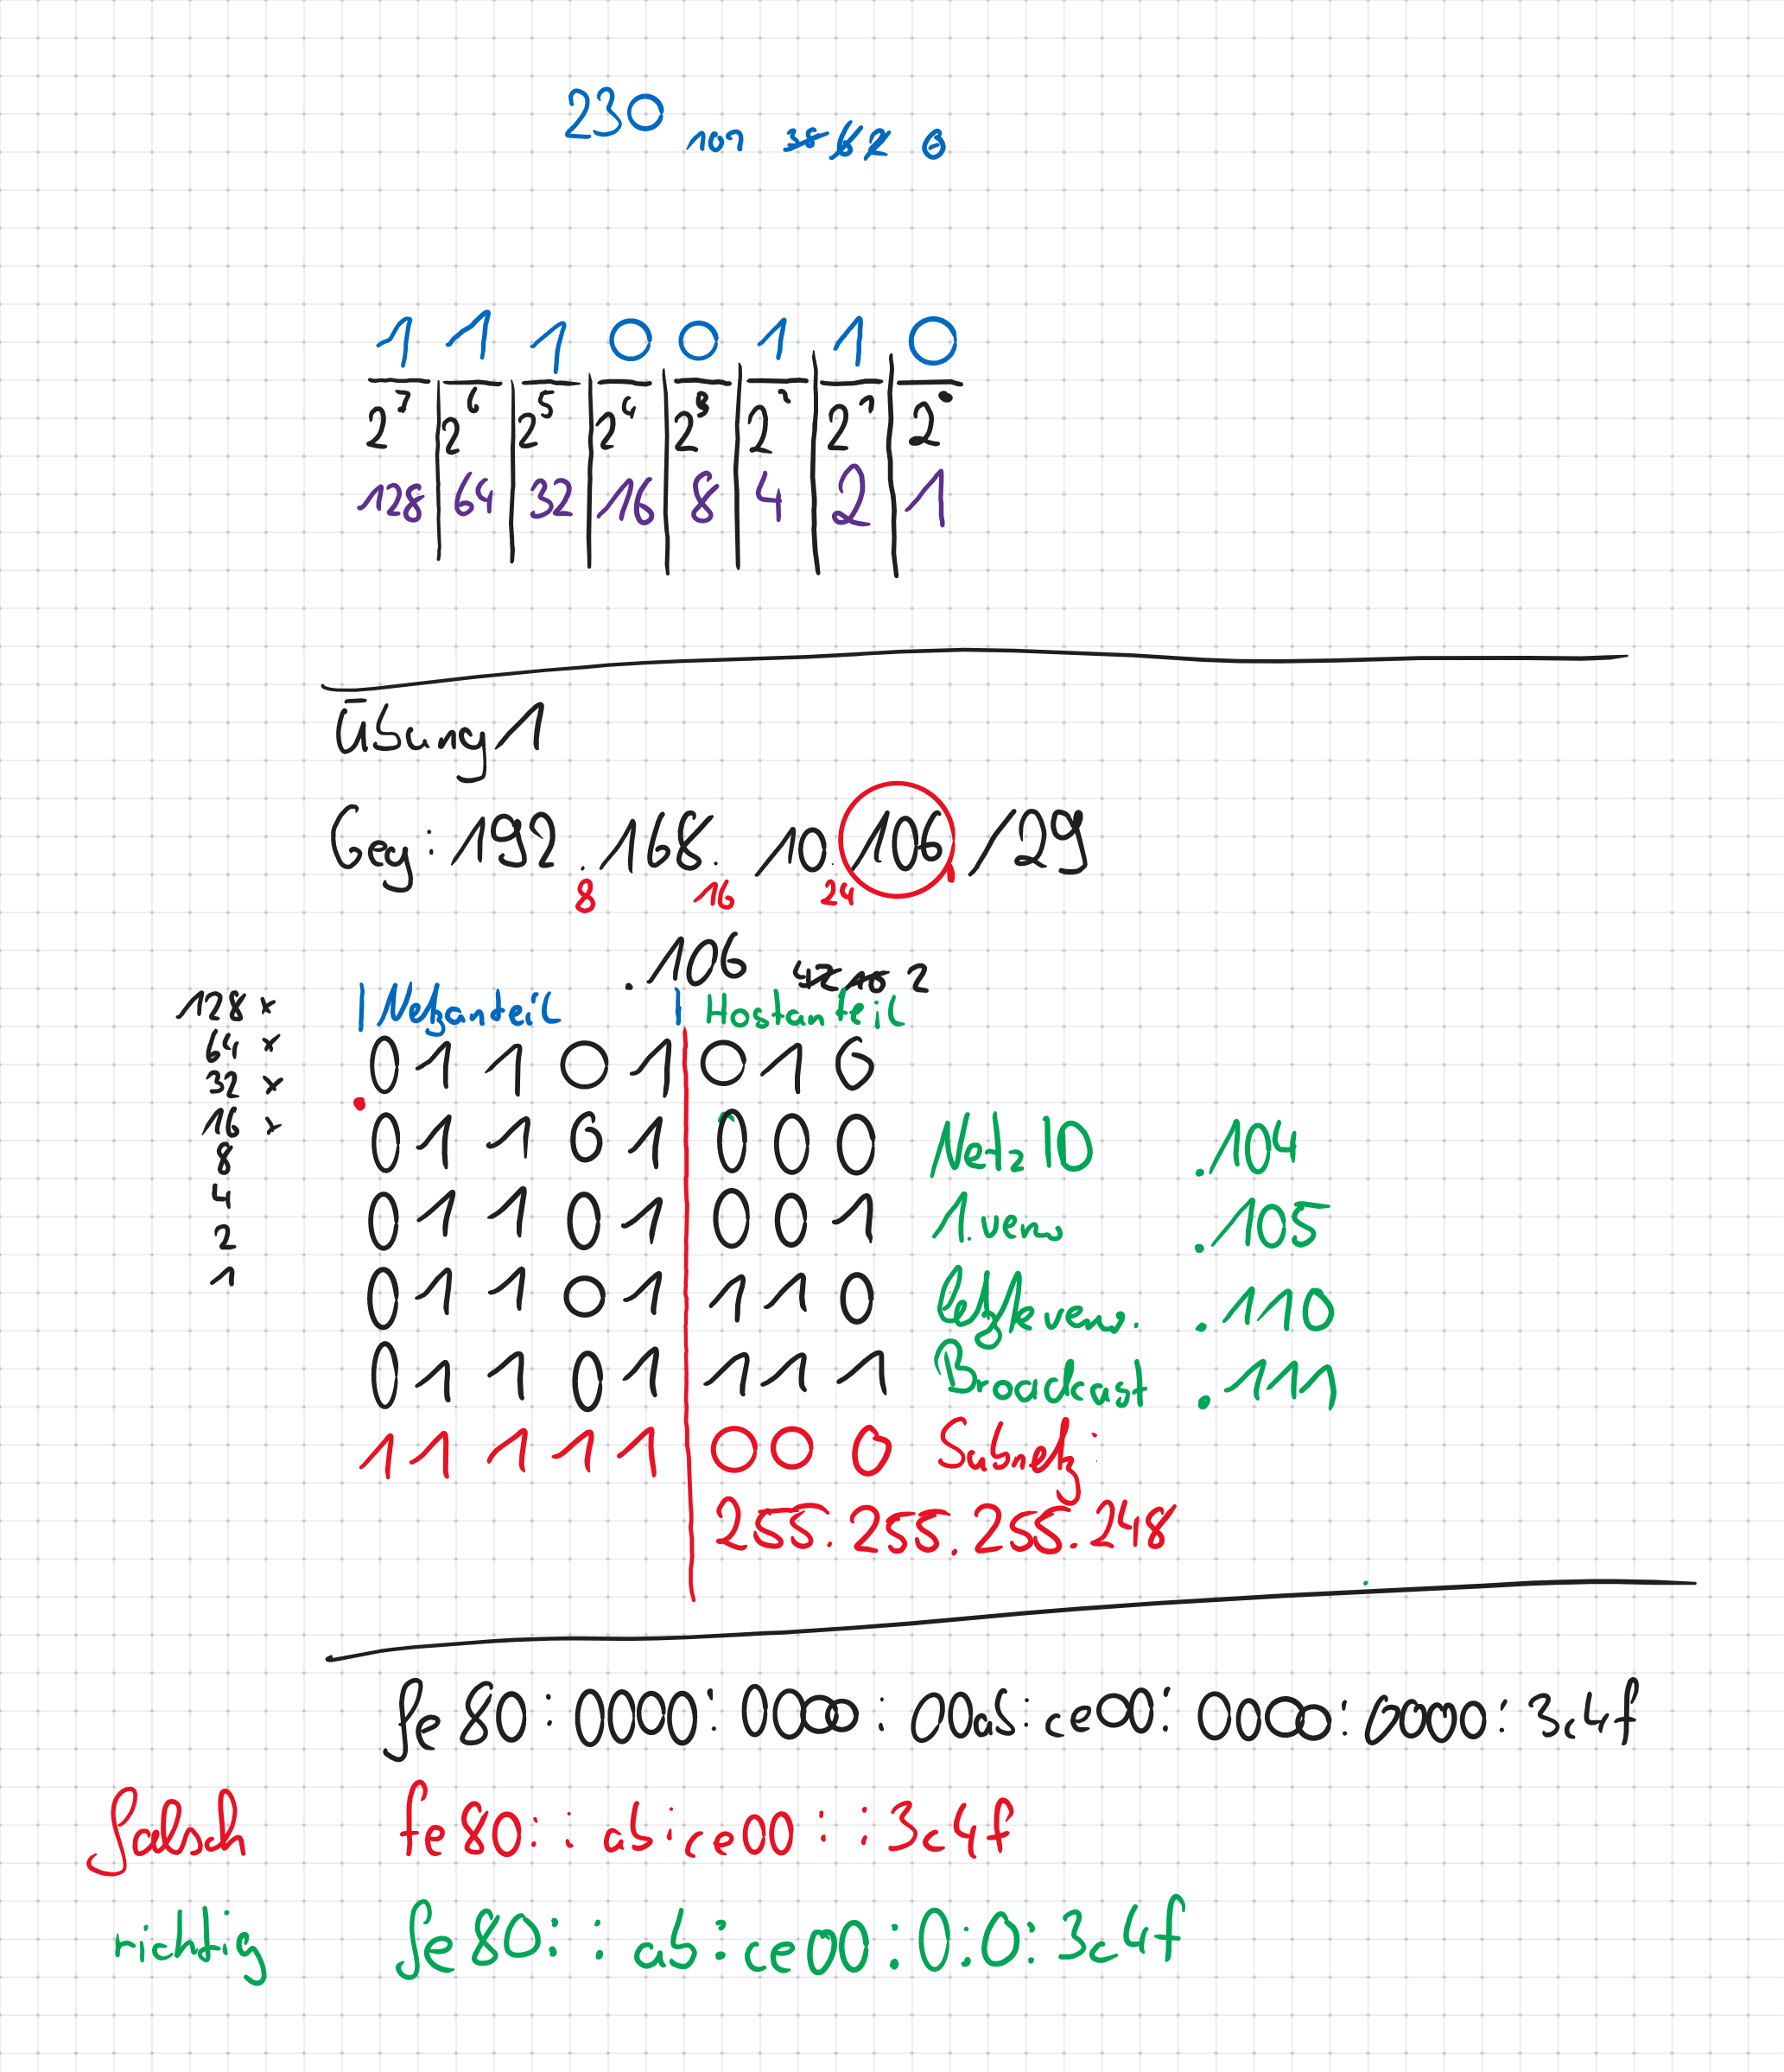 230 102 38 6 2 0
1 1 1 0 0 1 1 0
2^7 2^6 2^5 2^4 2^3 2^2 2^1 2^0
128 64 32 16 8 4 2 1
Übung 1
Geg: 192.168.10.106 /29
8 16 24
.106 42 10 2
|Netzanteil | Hostanteil
128 x
64 x
32 x
16 x
8
4
2
1
0 1 1 0 1 0 1 0
0 1 1 0 1 0 0 0 Netz ID .104
0 1 1 0 1 0 0 1 1. verw .105
0 1 1 0 1 1 1 0 letzte verw. .110
0 1 1 0 1 1 1 1 Broadcast .111
1 1 1 1 1 0 0 0 Subnetz
255.255.255.248
fe80:0000:0000:00ab:ce00:0000:0000:3c4f
falsch fe80::ab:ce00::3c4f
richtig fe80::ab:ce00:0:0:3c4f